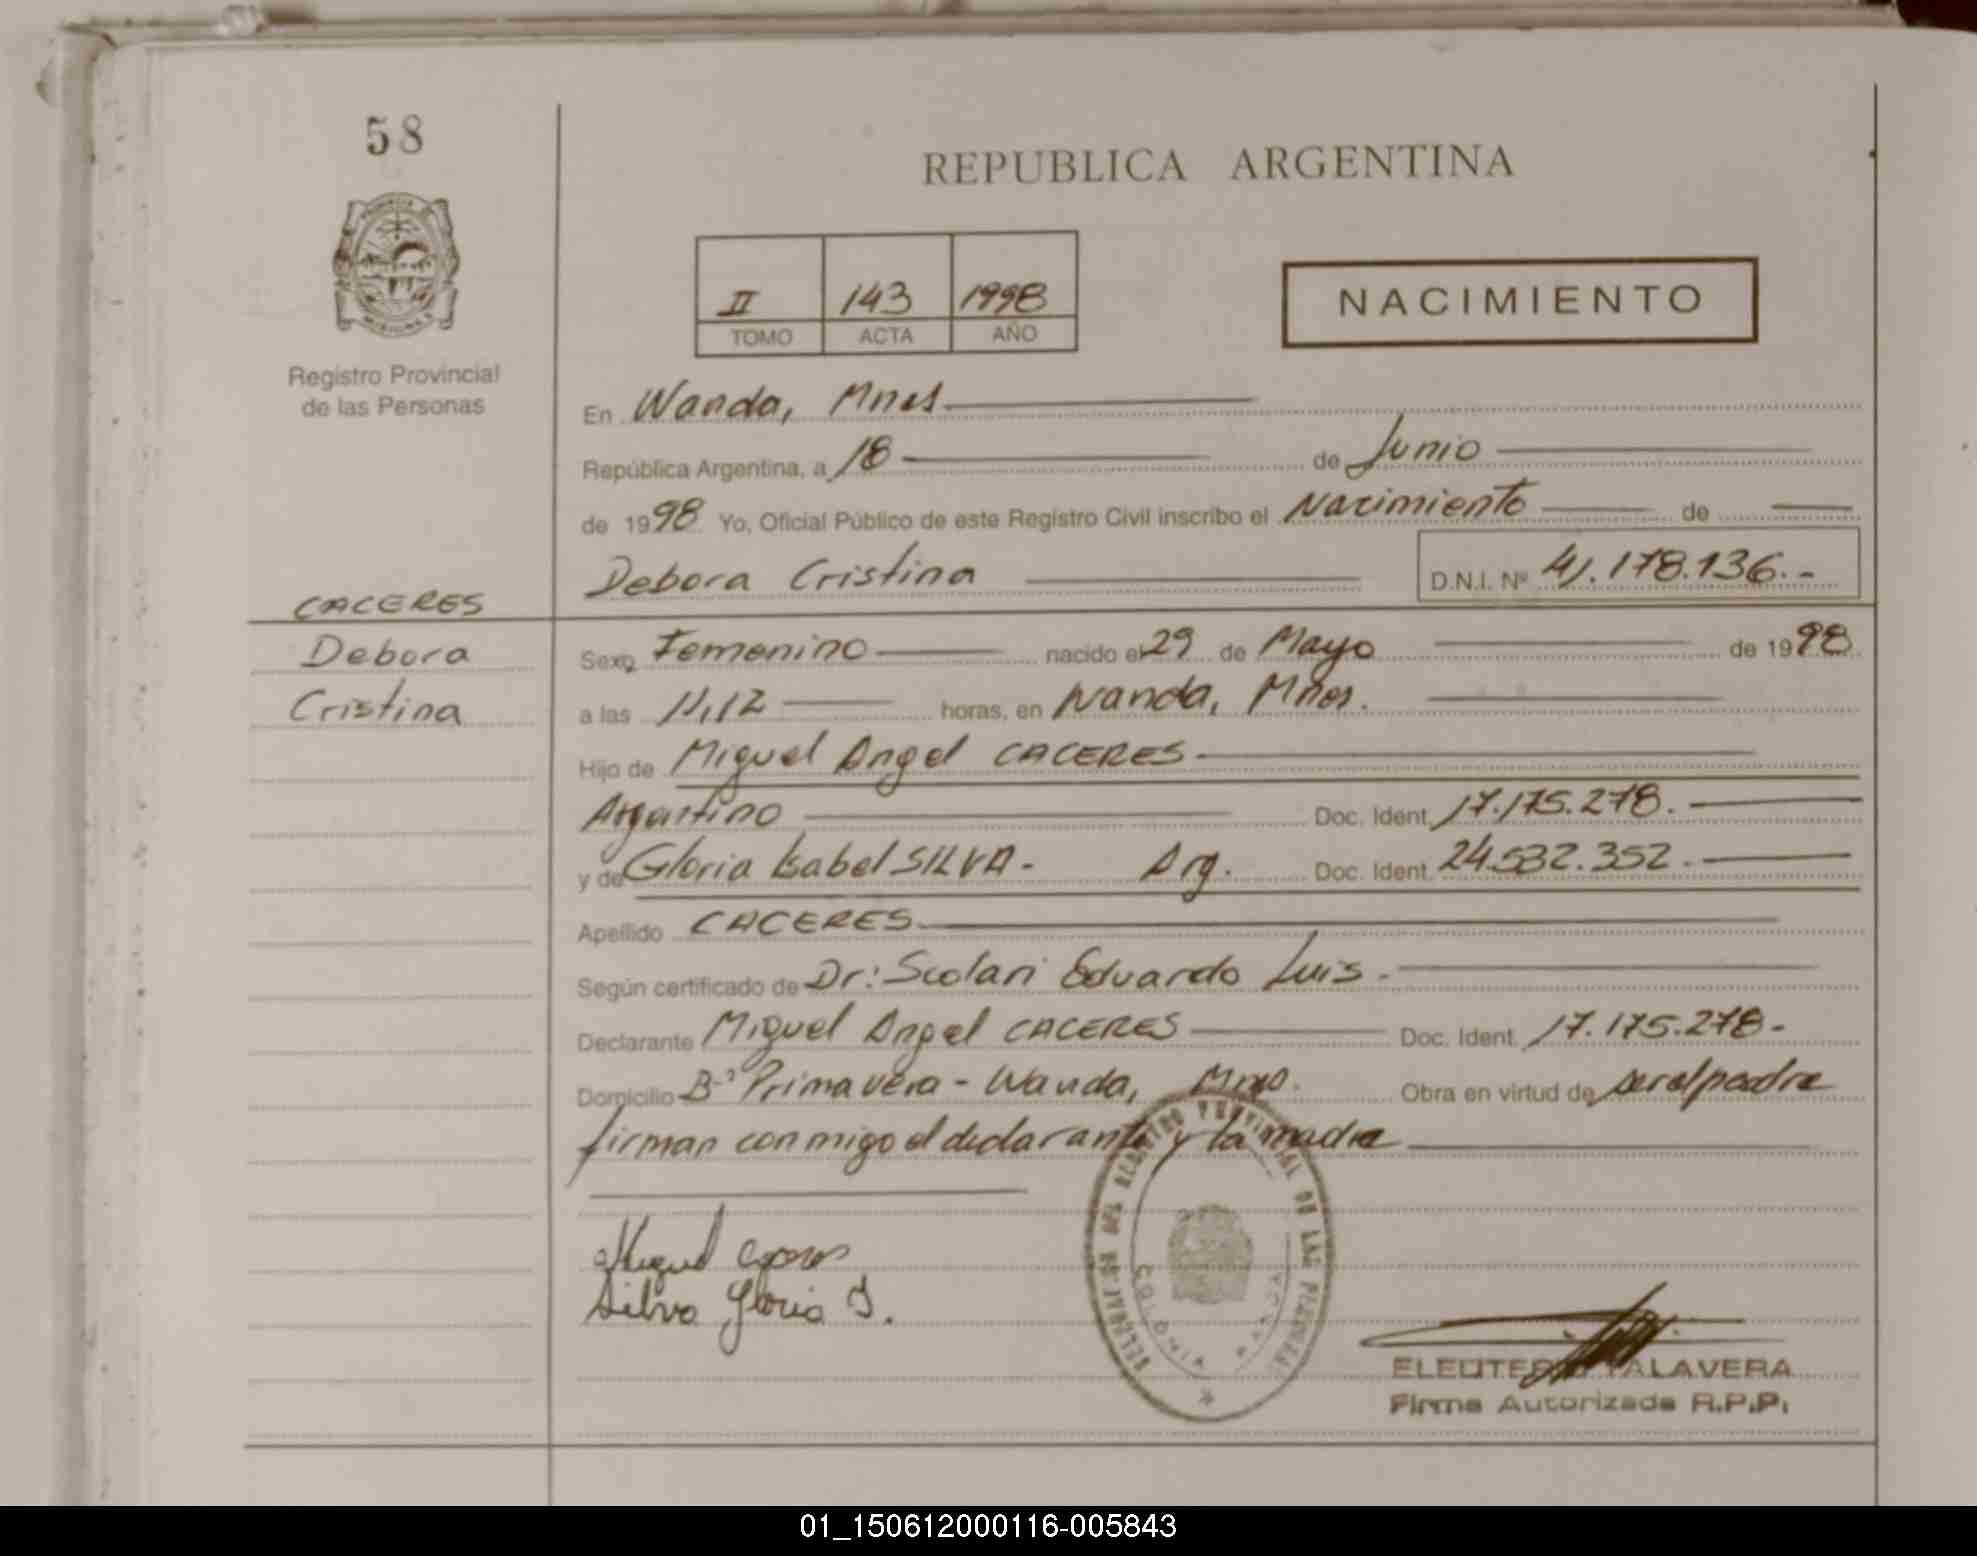 58
REPUBLICA ARGENTINA
II 143 1998
TOMO ACTA AÑO
NACIMIENTO
Registro Provincial
de las Personas
En Wanda, Mnes
República Argentina, a 18 de Junio
de 1998 Yo, Oficial Público de este Registro Civil inscribo el Nacimiento de
Debora Cristina D.N.I. Nº 41.178.136.-
CACERES
Debora
Cristina
Sexo Femenino nacido el 29 de Mayo de 1998
a las 11,12 horas, en Wanda, Mnes.
Hijo de Miguel Angel CACERES
Argentino Doc. Ident. 17.175.278.
y de Gloria Isabel SILVA- Arg. Doc. Ident. 24.532.352.
Apellido CACERES
Según certificado de Dr: Scolari Eduardo Luis.
Declarante Miguel Angel CACERES Doc. Ident. 17.175.278-
Domicilio Bº Primavera - Wanda, Mnes. Obra en virtud de ser el padre
firman conmigo el declarante y la madre
Miguel
Silva Gloria I.
COLONIA WANDA
ELEUTERIO TALAVERA
Firma Autorizada R.P.P.
01_150612000116-005843